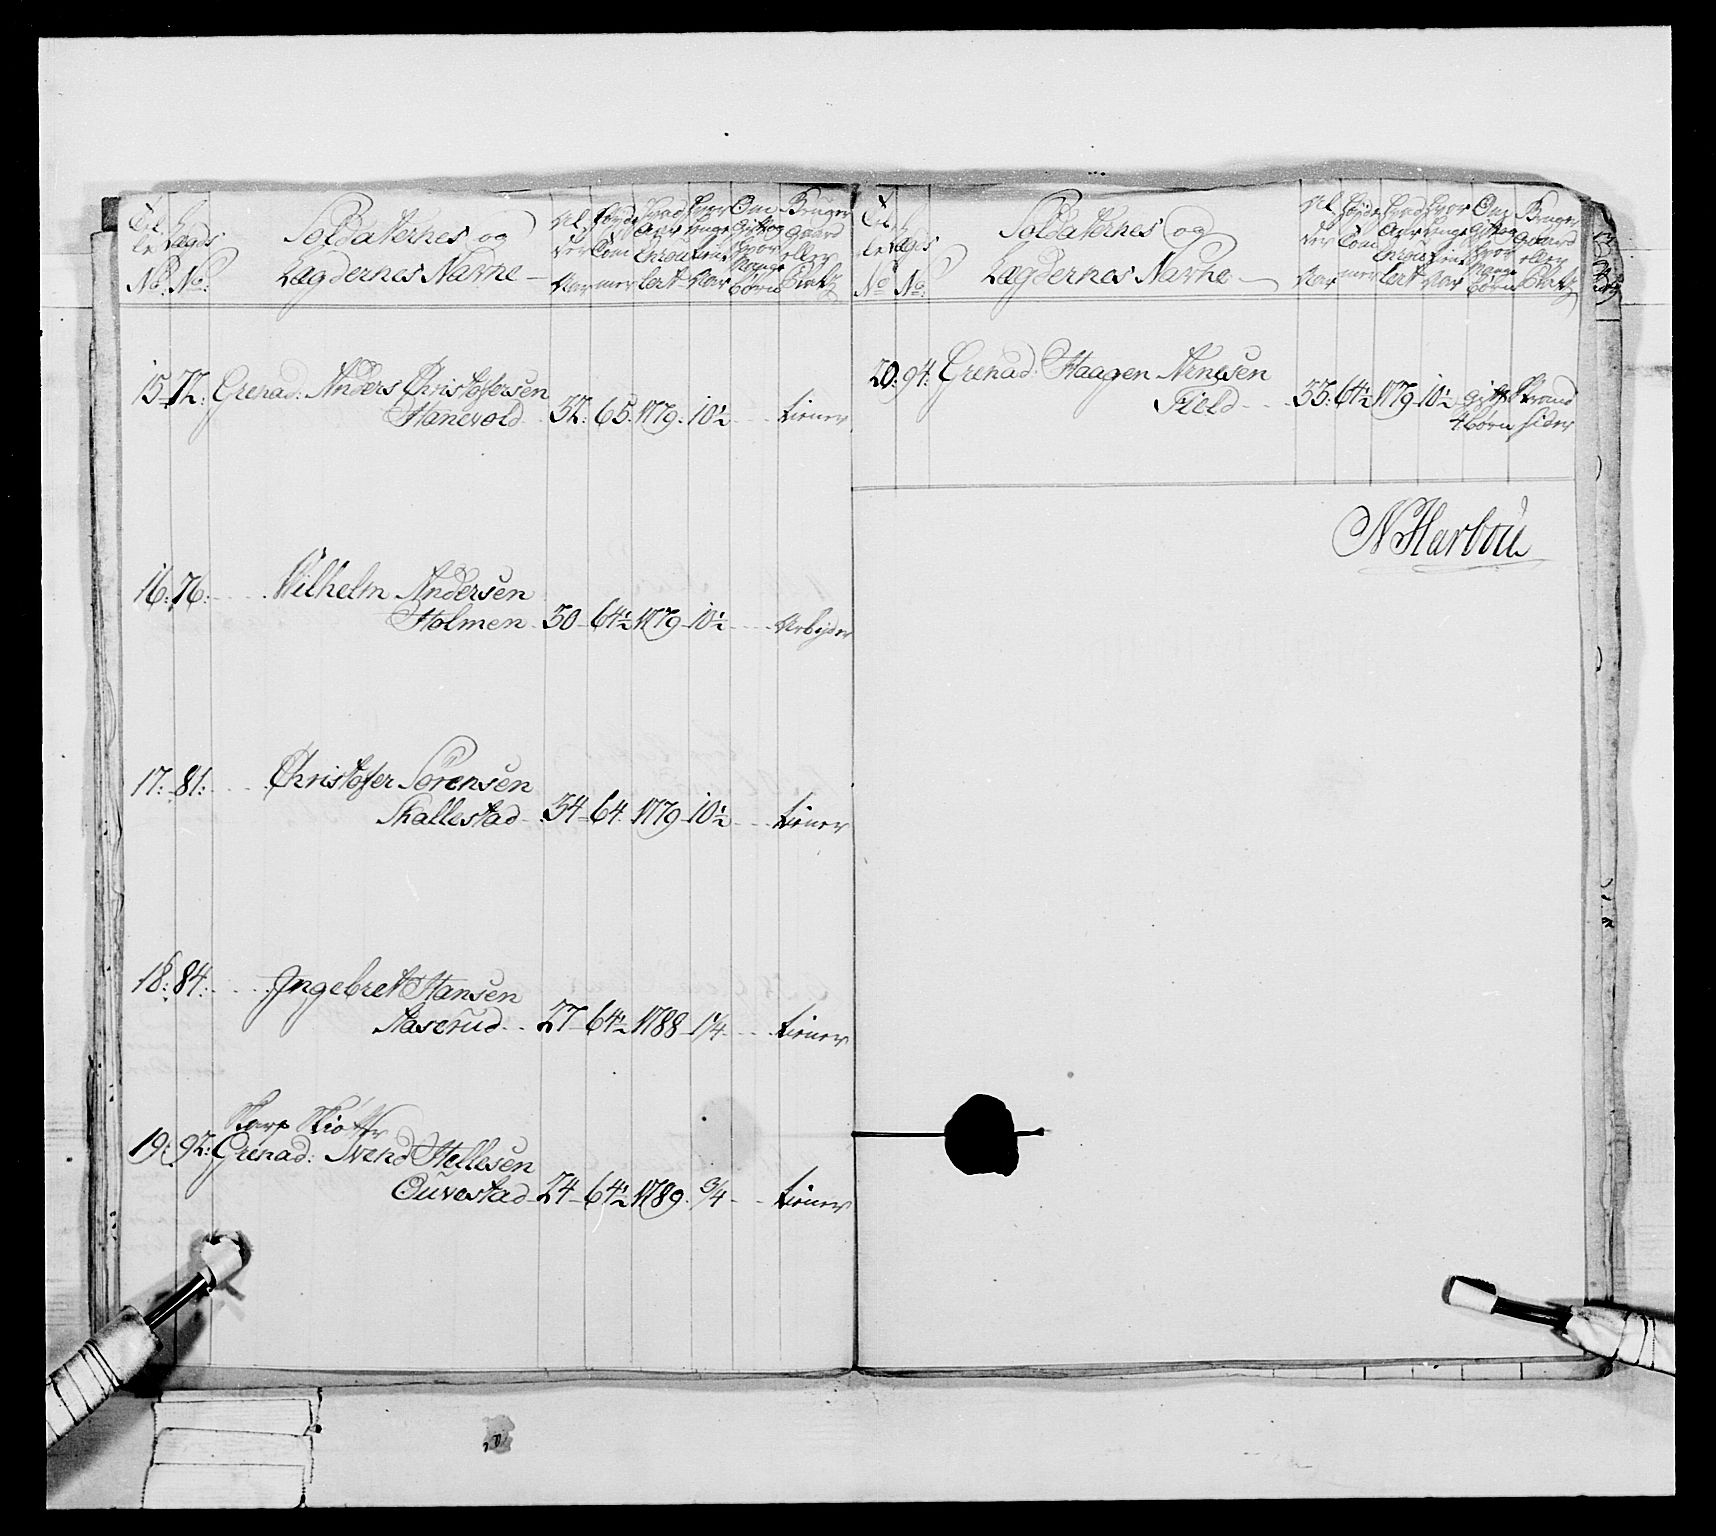 Soldaternes og
Lægdernes Navne
No. No.
15. 72. Grenad: Anders Christofersen
Hanevold 32. 65. 1779. 10½ tiener
16. 76. Wilhelm Andersen
Holmen 30 64½ 1779 10½ Arbeyder
17. 81. Christofer Sørensen
Skallestad 34 64 1779 10½ tiener
18. 84. Ingebret Hansen
Aaserud 27 64½ 1788 1¼ tiener
Skarp Skiøtter
19. 92. Grenad: Svend Hellesen
Ouvestad 24 64½ 1789 ¾ tiener
Soldaternes og
Lægdernes Navne
No No.
20. 94. Grenad. Haagen Arnesen
Field 33. 64½ 1779 10½ gift Strand
4 børn sider
N Harbou